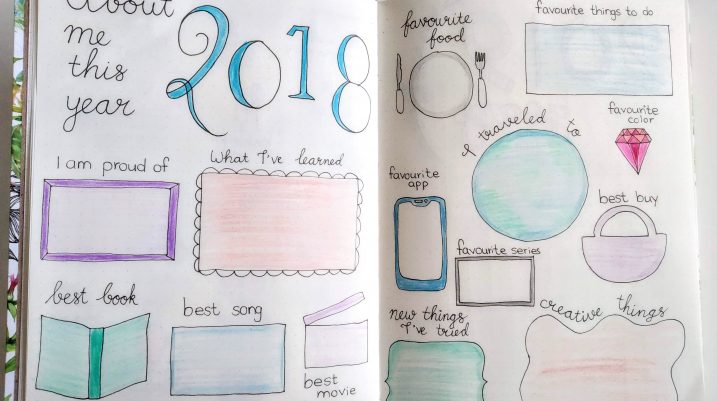 About
me
this
year
2018
I am proud of
What I've learned
best book
best song
best
movie
favourite
food
favourite things to do
I traveled to
favourite
color
favourite
app
best buy
favourite series
new things
I've tried
creative things